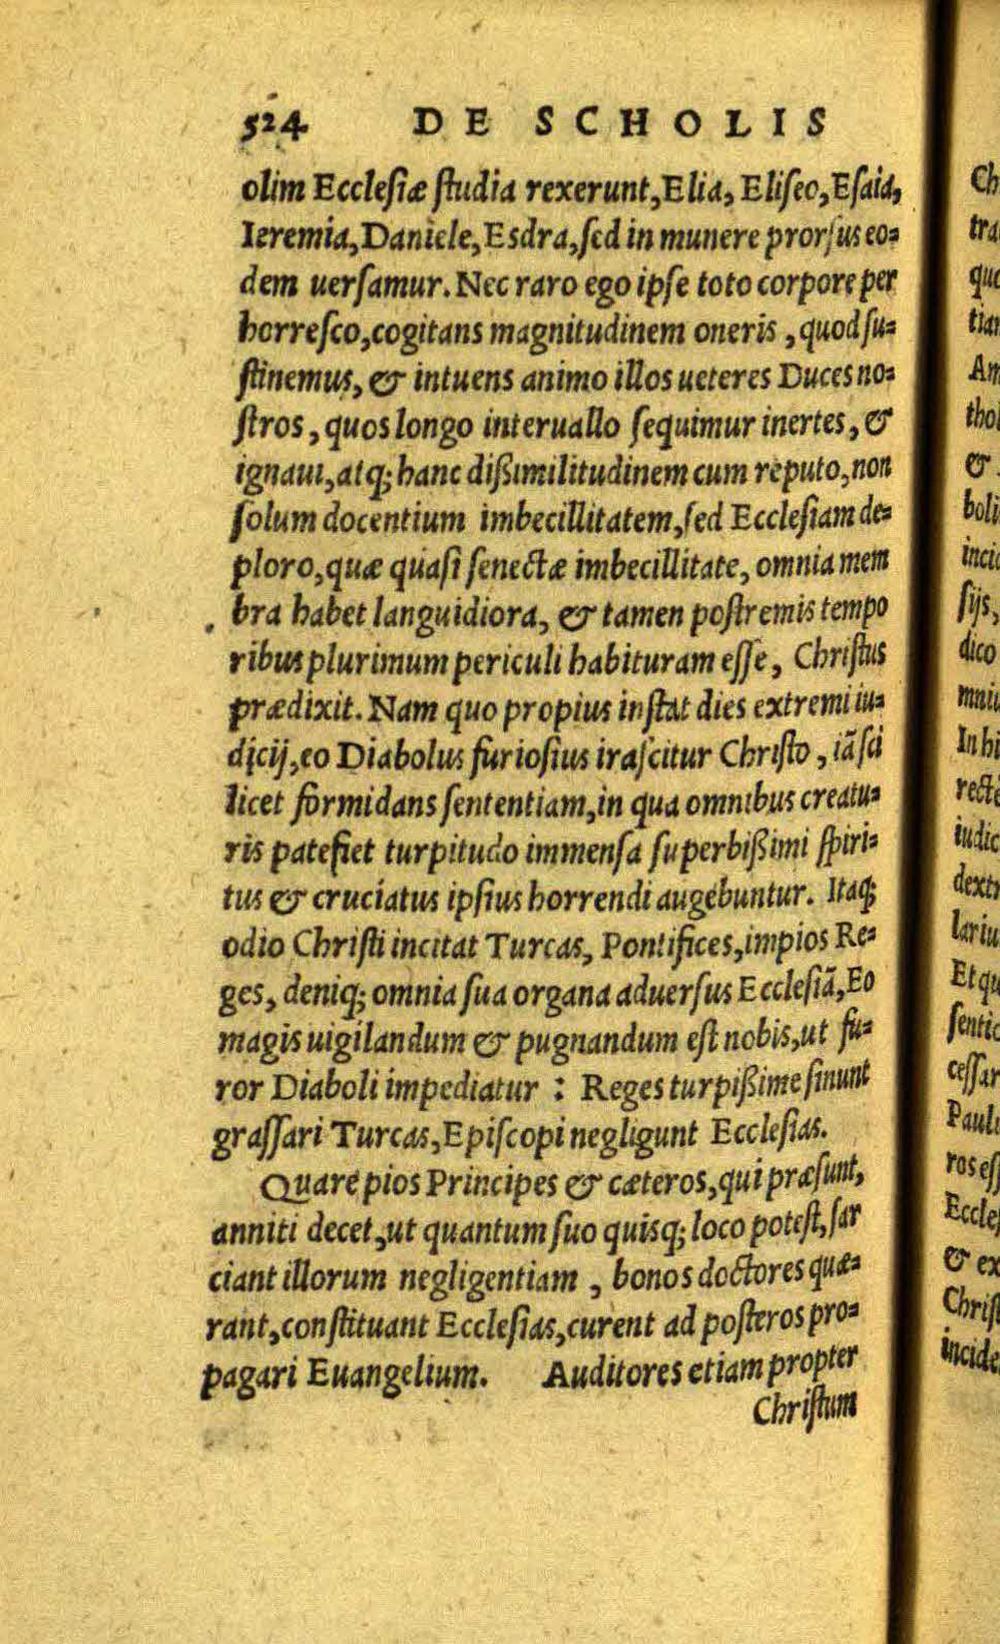 524 DE SCHOLIS
olim Ecclesiæ studia rexerunt, Elia, Eliseo, Esaia,
Ieremia, Daniele, Esdra, sed in munere prorsus eo=
dem uersamur. Nec raro ego ipse toto corpore per
horresco, cogitans magnitudinem oneris, quod su=
stinemus, & intuens animo illos ueteres Duces no=
stros, quos longo interuallo sequimur inertes, &
ignaui, atq; hanc dißimilitudinem cum reputo, non
solum docentium imbecillitatem, sed Ecclesiam de=
ploro, quæ quasi senectæ imbecillitate, omnia mem
bra habet languidiora, & tamen postremis tempo
ribus plurimum periculi habituram esse, Christus
prædixit. Nam quo propius instat dies extremi iu=
dicij, eo Diabolus furiosius irascitur Christo, iã sci
licet formidans sententiam, in qua omnibus creatu=
ris patefiet turpitudo immensa superbißimi spiri=
tus & cruciatus ipsius horrendi augebuntur. Itaq;
odio Christi incitat Turcas, Pontifices, impios Re=
ges, deniq; omnia sua organa aduersus Ecclesiã, Eo
magis uigilandum & pugnandum est nobis, ut fu=
ror Diaboli impediatur : Reges turpißime sinunt
grassari Turcas, Episcopi negligunt Ecclesias.
Quare pios Principes & cæteros, qui præsunt,
anniti decet, ut quantum suo quisq; loco potest, sar
ciant illorum negligentiam, bonos doctores quæ=
rant, constituant Ecclesias, curent ad posteros pro=
pagari Euangelium. Auditores etiam propter
Christum
Ch
tra
que
tian
Am
thol
&
boli
incid
sijs,
dico
mniu
In hi
recte
iudic
dextr
lariu
Et qu
sentic
cessar
Pauli
ros es
Eccles
& ex
Christ
incide